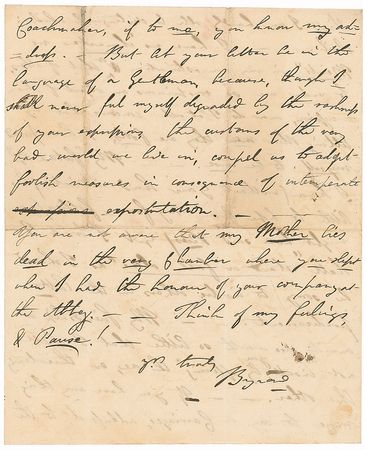 Coachmaker, if to me, you know my ad-
=dress. — But let your letter be in the
language of a Gentleman, because, though I
shall never feel myself degraded by the rashness
of your expressions, the customs of the very
bad world we live in, compel us to adopt
foolish measures in consequence of intemperate
expostulation. —
You are not aware that my Mother lies
dead in the very Chamber where you slept
when I had the honour of your company at
the Abbey. — — Think of my feelings,
& Pause! —
yrs truly
Byron